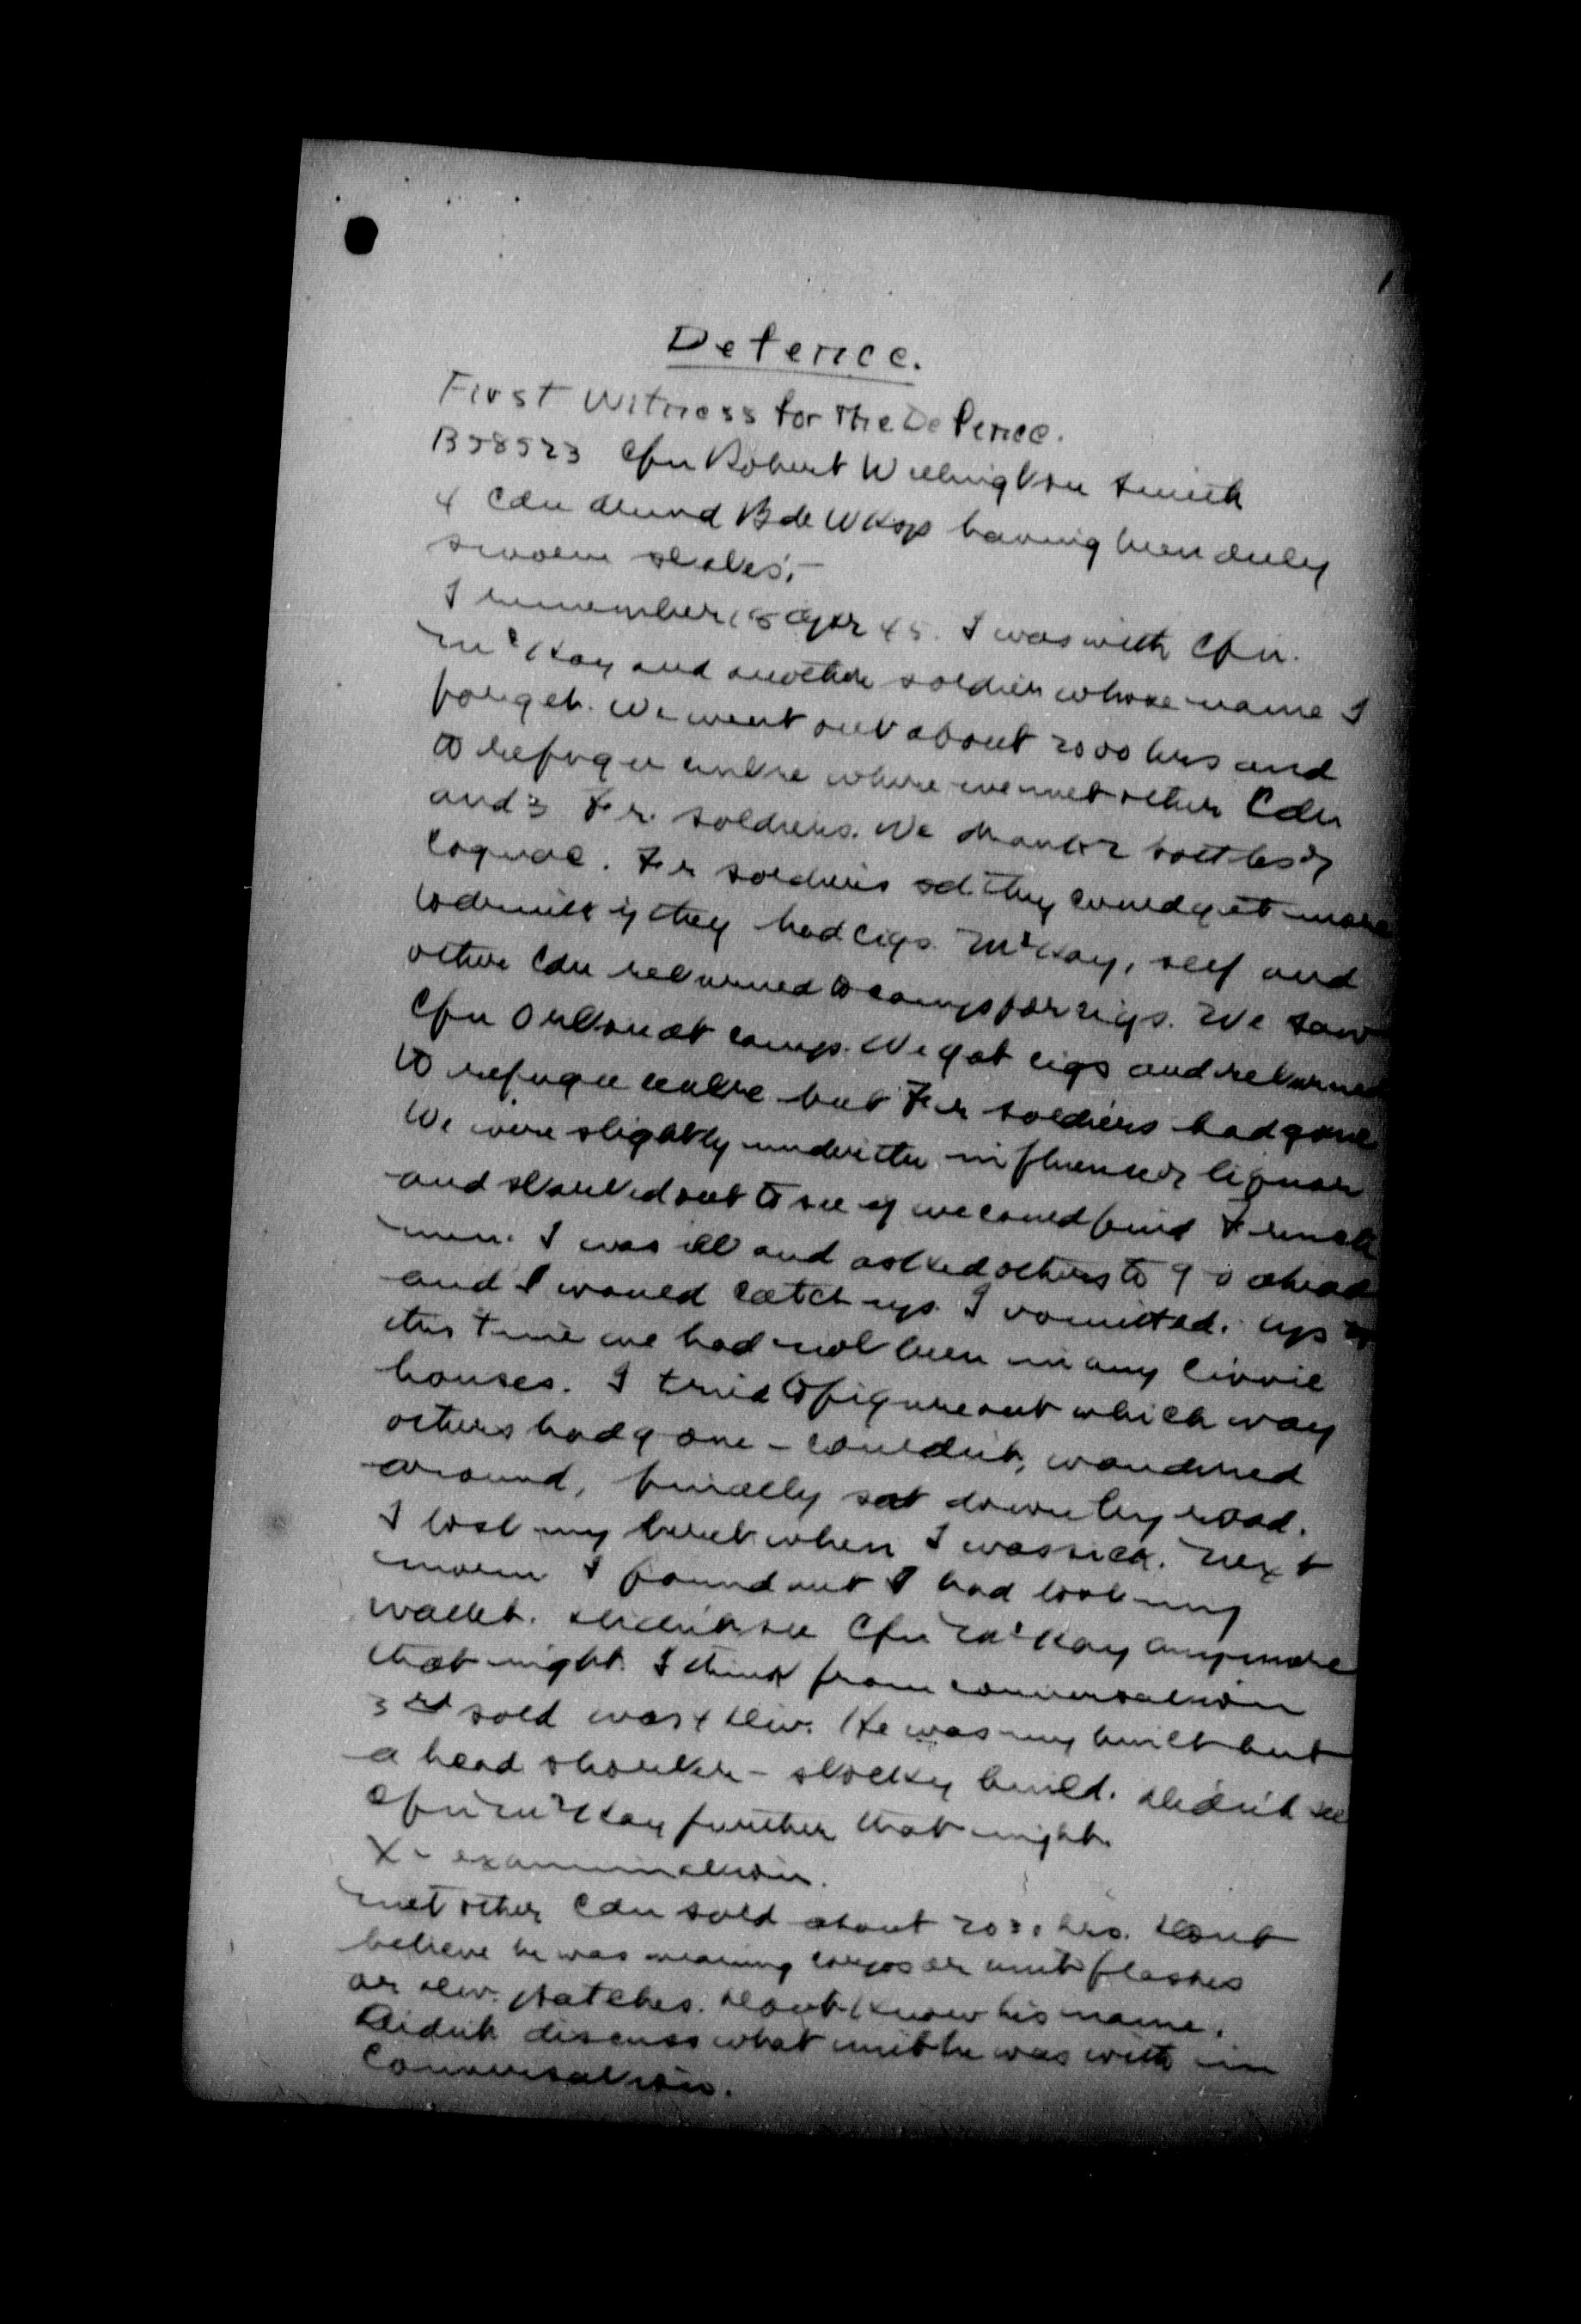 Defence.
First Witness for The Defence.
B58523 Cfn Robert Wellington Smith
4 Cdn Armd Bde Wksp having been duly
sworn states:-
I remember 18 Apr 45. I was with Cfn.
McKay and another soldier whose name I
forget. We went out about 2000 hrs and
to refugee centre where we met other Cdn
and 3 Fr. soldiers. We drank 2 bottles of
Cognac. Fr soldiers sd. they could get more
to drink if they had cigs. McKay, self and
other Cdn returned to camp for cigs. We saw
Cfn at camp. We got cigs and returned
to refugee centre but Fr soldiers had gone
We were slightly under the influence of liquor
and started out to see if we could find French
men. I was ill and asked others to go ahead
and I would catch up. I vomitted. Up to
this time we had not been in any civvie
houses. I tried to figure out which way
others had gone - couldn't, wandered
around, finally sat down by road.
I lost my beret when I was sick. Next
morn I found out I had lost my
wallet. Didn't see Cfn McKay anymore
that night. I think from conversation
3rd sold was 4 Div. He was my built but
a head shorter - stocky build. Didn't see
Cfn McKay further that night.
X - examination.
Met other Cdn sold about 2030 hrs. Don't
believe he was wearing corps or unit flashes
or div. patches. Don't know his name.
Didn't discuss what unit he was with in
conversation.